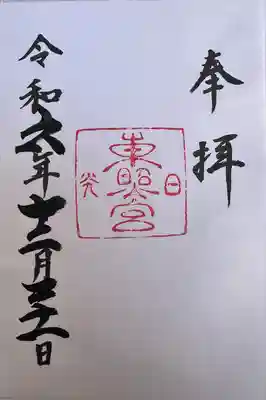 奉拝
日光
東照宮
令和六年十二月三十一日